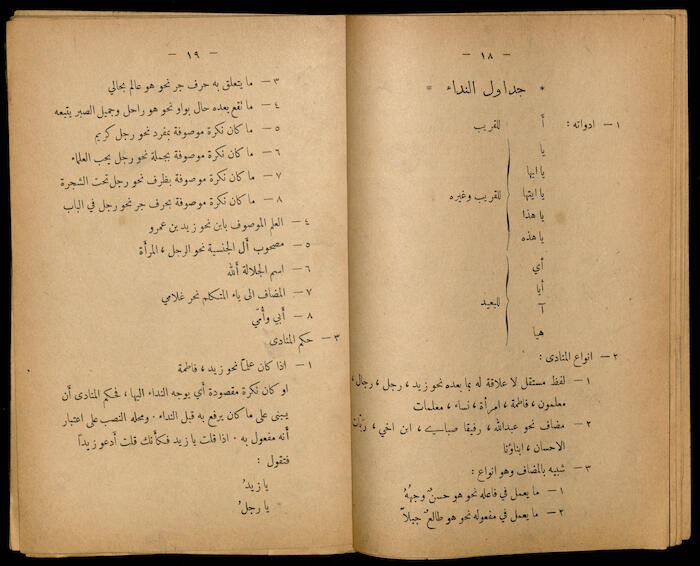 — ١٨ —
* جداول النداء *
١ — ادواته : أَ للقريب
يا
يا ايها
يا ايتها للقريب وغيره
يا هذا
يا هذه
أي
أيا
آ للبعيد
هيا
٢ — انواع المنادى :
١ — لفظ مستقل لا علاقة له بما بعده نحو زيد ، رجل ، رجال ،
معلمون ، فاطمة ، امرأة ، نساء ، معلمات
٢ — مضاف نحو عبدالله ، رفيقا صباي ، ابن اخي ، ربَّات
الاحسان ، ابناؤنا
٣ — شبيه بالمضاف وهو انواع :
١ — ما يعمل في فاعله نحو هو حسنٌ وجههُ
٢ — ما يعمل في مفعوله نحو هو طالعٌ جبلاً
— ١٩ —
٣ — ما يتعلق به حرف جر نحو هو عالم بحالي
٤ — ما تقع بعده حال بواو نحو هو راحل وجميل الصبر يتبعه
٥ — ما كان نكرة موصوفة بمفرد نحو رجل كريم
٦ — ما كان نكرة موصوفة بجملة نحو رجل يحب العلماء
٧ — ما كان نكرة موصوفة بظرف نحو رجل تحت الشجرة
٨ — ما كان نكرة موصوفة بحرف جر نحو رجل في الباب
٤ — العلم الموصوف بابن نحو زيد بن عمرو
٥ — مصحوب أَل الجنسية نحو الرجل ، المرأة
٦ — اسم الجلالة أَلله
٧ — المضاف الى ياء المتكلم نحو غلامي
٨ — أَبي وأُمّي
٣ — حكم المنادى
١ — اذا كان علماً نحو زيد ، فاطمة
او كان نكرة مقصودة أَي يوجه النداء اليها ، فحكم المنادى أَن
يبنى على ما كان يرفع به قبل النداء . ومحله النصب على اعتبار
أَنه مفعول به . اذا قلت يا زيد فكأَنك قلت أَدعو زيداً
فتقول :
يا زيدُ
يا رجلُ